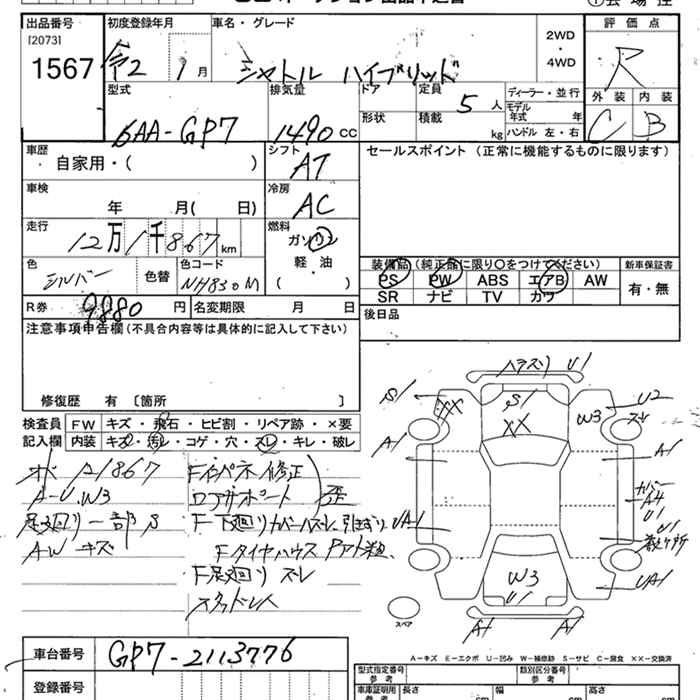 出品番号
[2073]
1567
初度登録年月
令2 1月
車名・グレード
シャトル ハイブリッド
2WD
・
4WD
評価点
R
外装 内装
C B
型式
6AA-GP7
排気量
1490 CC
ドア
形状
定員
5人
積載
kg
ディーラー・並行
モデル年式 年
ハンドル 左・右
車歴
自家用・( )
シフト
AT
セールスポイント (正常に機能するものに限ります)
車検
年 月( 日)
冷房
AC
走行
12万1千867km
燃料
ガソリン
軽・油
( )
色
シルバー
色替
色コード
NH830M
装備品 (純正品に限り○をつけてください)
PS PW ABS エアB AW
SR ナビ TV カワ
新車保証書
有・無
R券 9880 円
名変期限 月 日
後日品
注意事項申告欄 (不具合内容等は具体的に記入して下さい)
修復歴 有 〔箇所 〕
検査員
記入欄
FW キズ・飛石・ヒビ割・リペア跡・×要
内装 キズ・汚レ・コゲ・穴・スレ・キレ・破レ
A-U.W3
足廻り一部S
AWキズ
ロアサポート
歪
F足廻り スレ
スタッドレス
S1
XX
S1
XX
U1
U2
スレ
W3
A1
A1
カバー
A4
U1
U1
UA1
UA1
W3
U1
A1
A1
スペア
A-キズ E-エクボ U-凹み W-補修跡 S-サビ C-腐食 XX-交換済
車台番号
GP7-2113776
登録番号
型式指定番号
参考
類別区分番号
参考
車庫証明用
参考
長さ
cm
幅
cm
高さ
cm